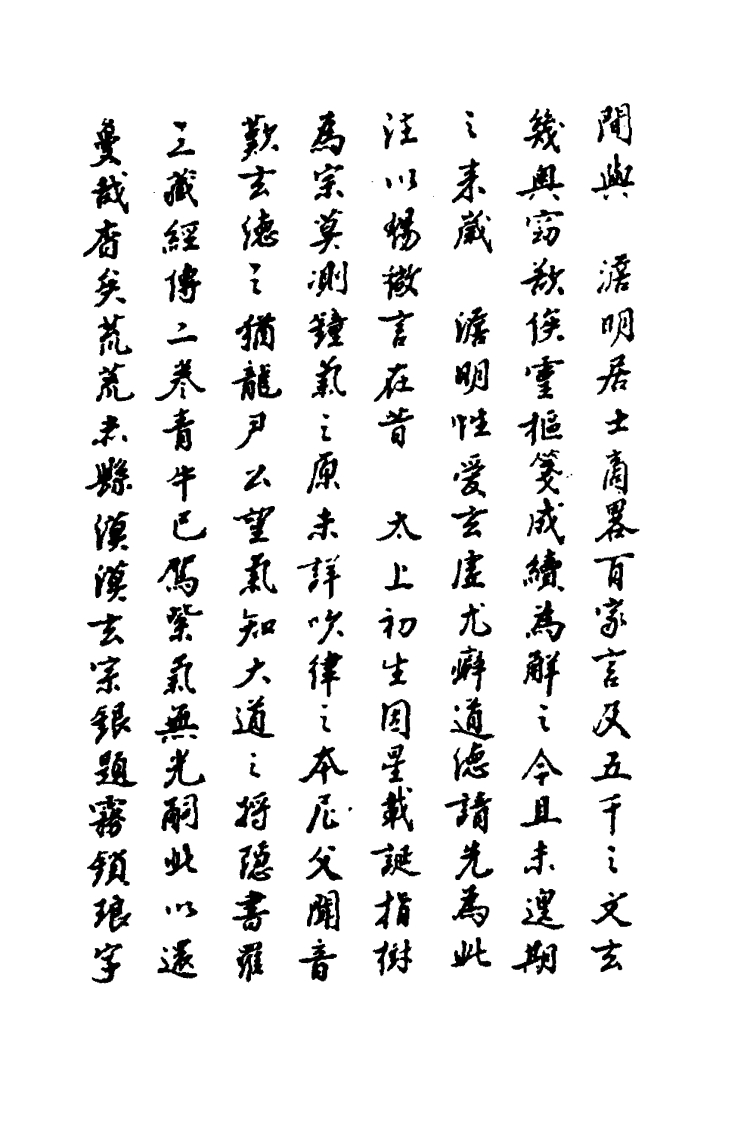 間與　澹明居士商畧百家言及五千之文玄
幾奧窈欲俟靈樞箋成續為解之今且未遑期
之来歲　澹明性愛玄虛尤癖道德請先為此
注以暢微言在昔　太上初生因星載誕指樹
為宗莫測鐘氣之原未詳吹律之本尼父聞音
歎玄德之猶龍尹公望氣知大道之將隱書羅
三藏經傳二卷青牛已駕紫氣無光嗣此以還
敻哉杳矣荒荒赤縣漠漠玄宗銀題霧鎖琅字